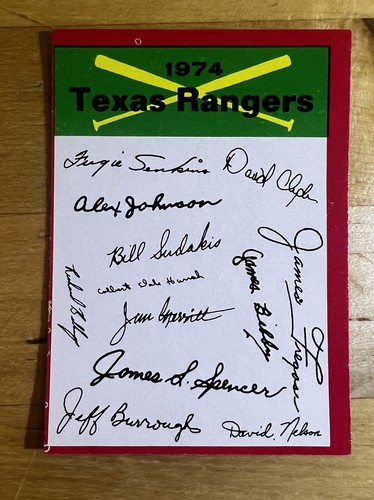 1974
Texas Rangers
Fergie Jenkins
David Clyde
Alex Johnson
Bill Sudakis
James Fregosi
James Bibby
Jim Merritt
James L. Spencer
Jeff Burroughs
David. Nelson